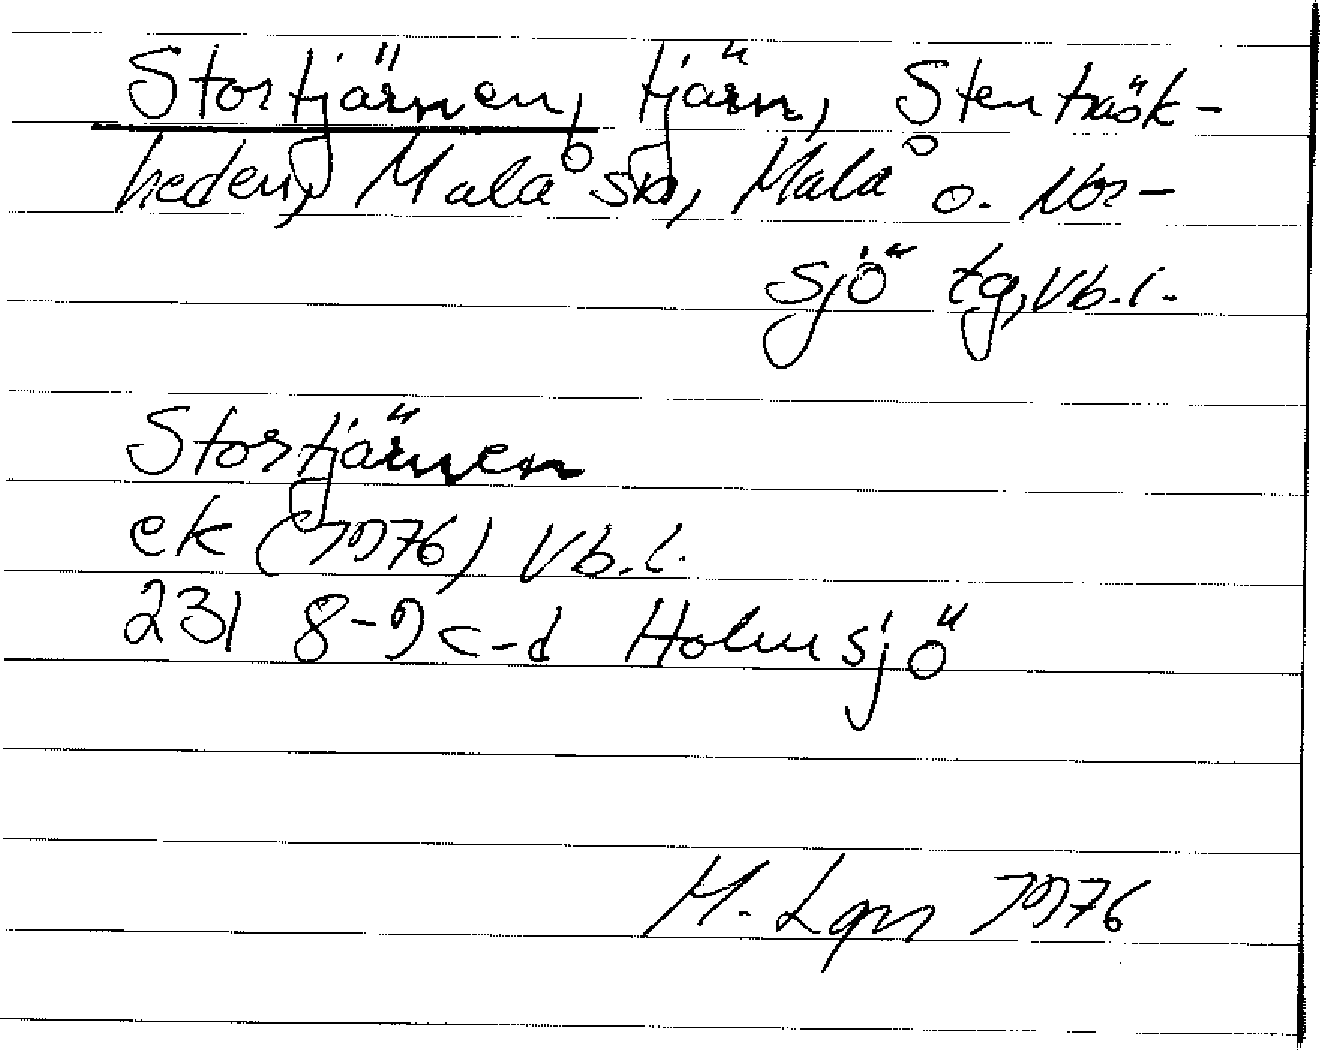 Stortjärnen, tjärn, Stenträsk-
heden, Malå sn, Malå o. Nor-
sjö tg, Vb.l.
Stortjärnen
ek (1976) Vb.l.
23I 8-9 c-d Holmsjö
M. Lgn 1976